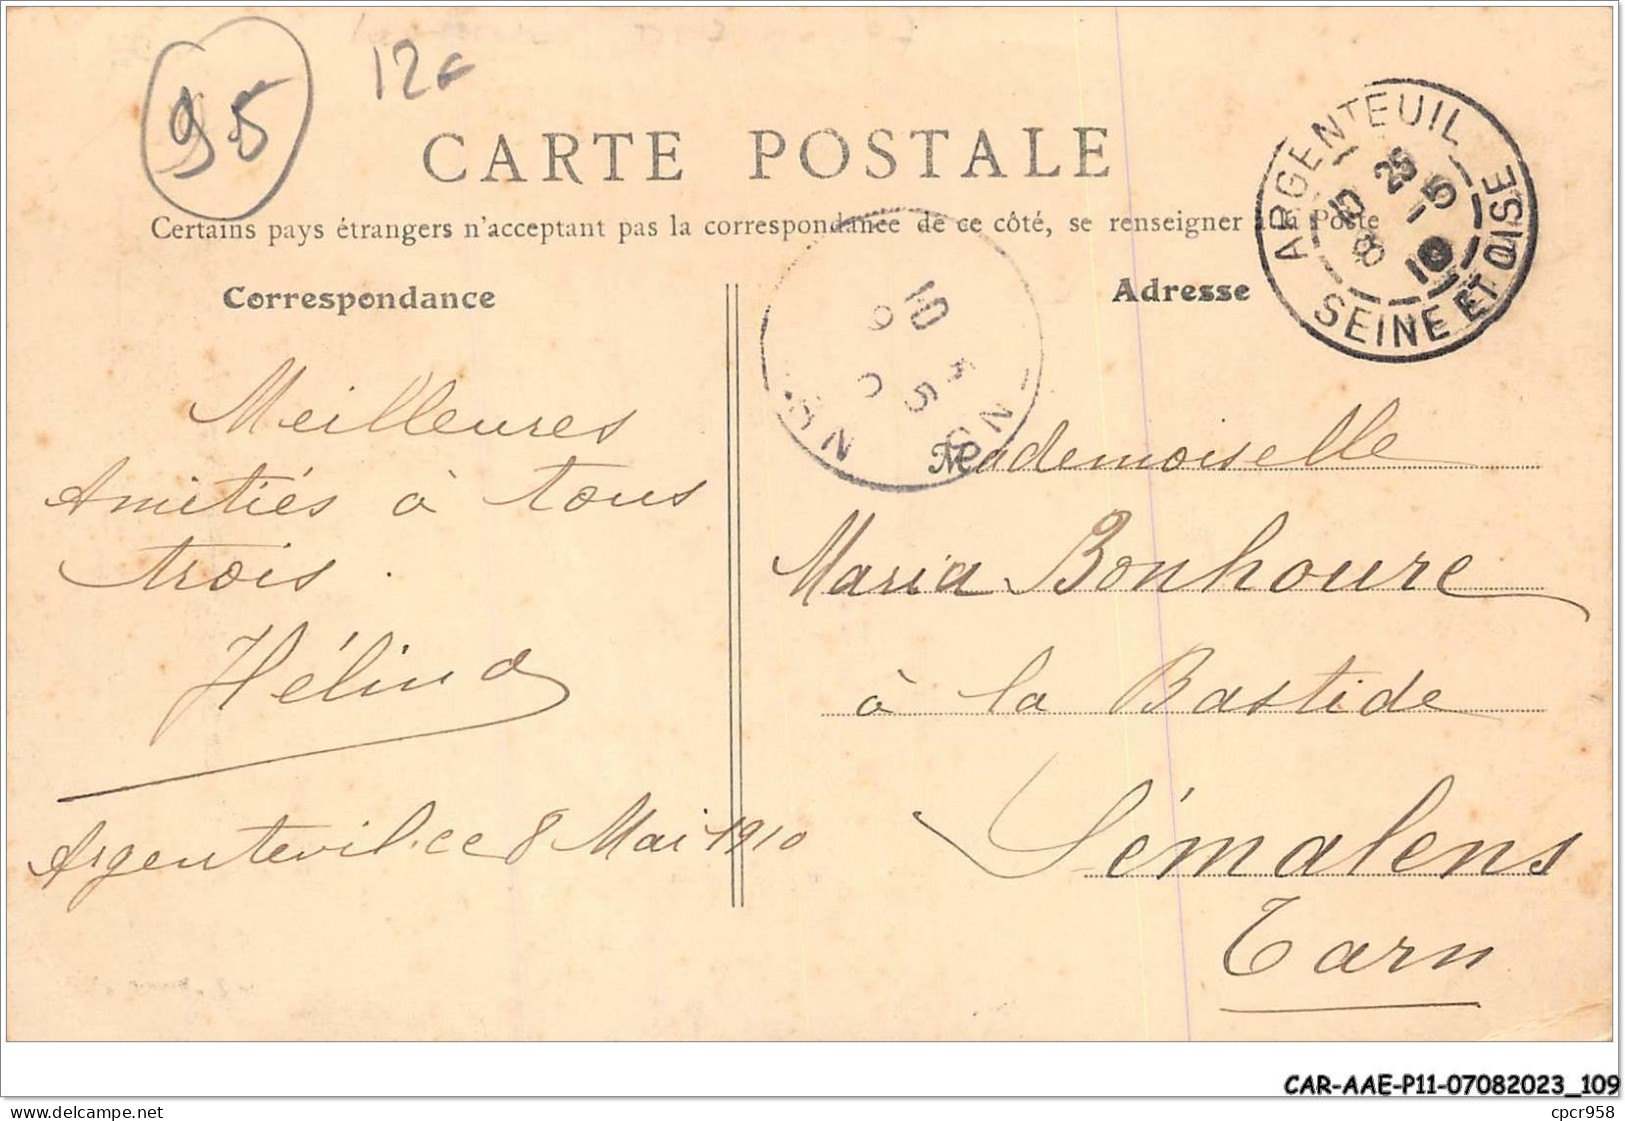 95
12€
CARTE POSTALE
Certains pays étrangers n'acceptant pas la correspondance de ce côté, se renseigner à la Poste
ARGENTEUIL
10 25
8 -5
10
SEINE ET OISE
Correspondance
Meilleures
Amitiés à tous
trois.
Hélina
Argenteuil. ce 8 Mai 1910
Adresse
Mademoiselle
Maria Bonhoure
à la Bastide
Sémalens
Tarn
CAR-AAE-P11-07082023_109
www.delcampe.net
cpcr958